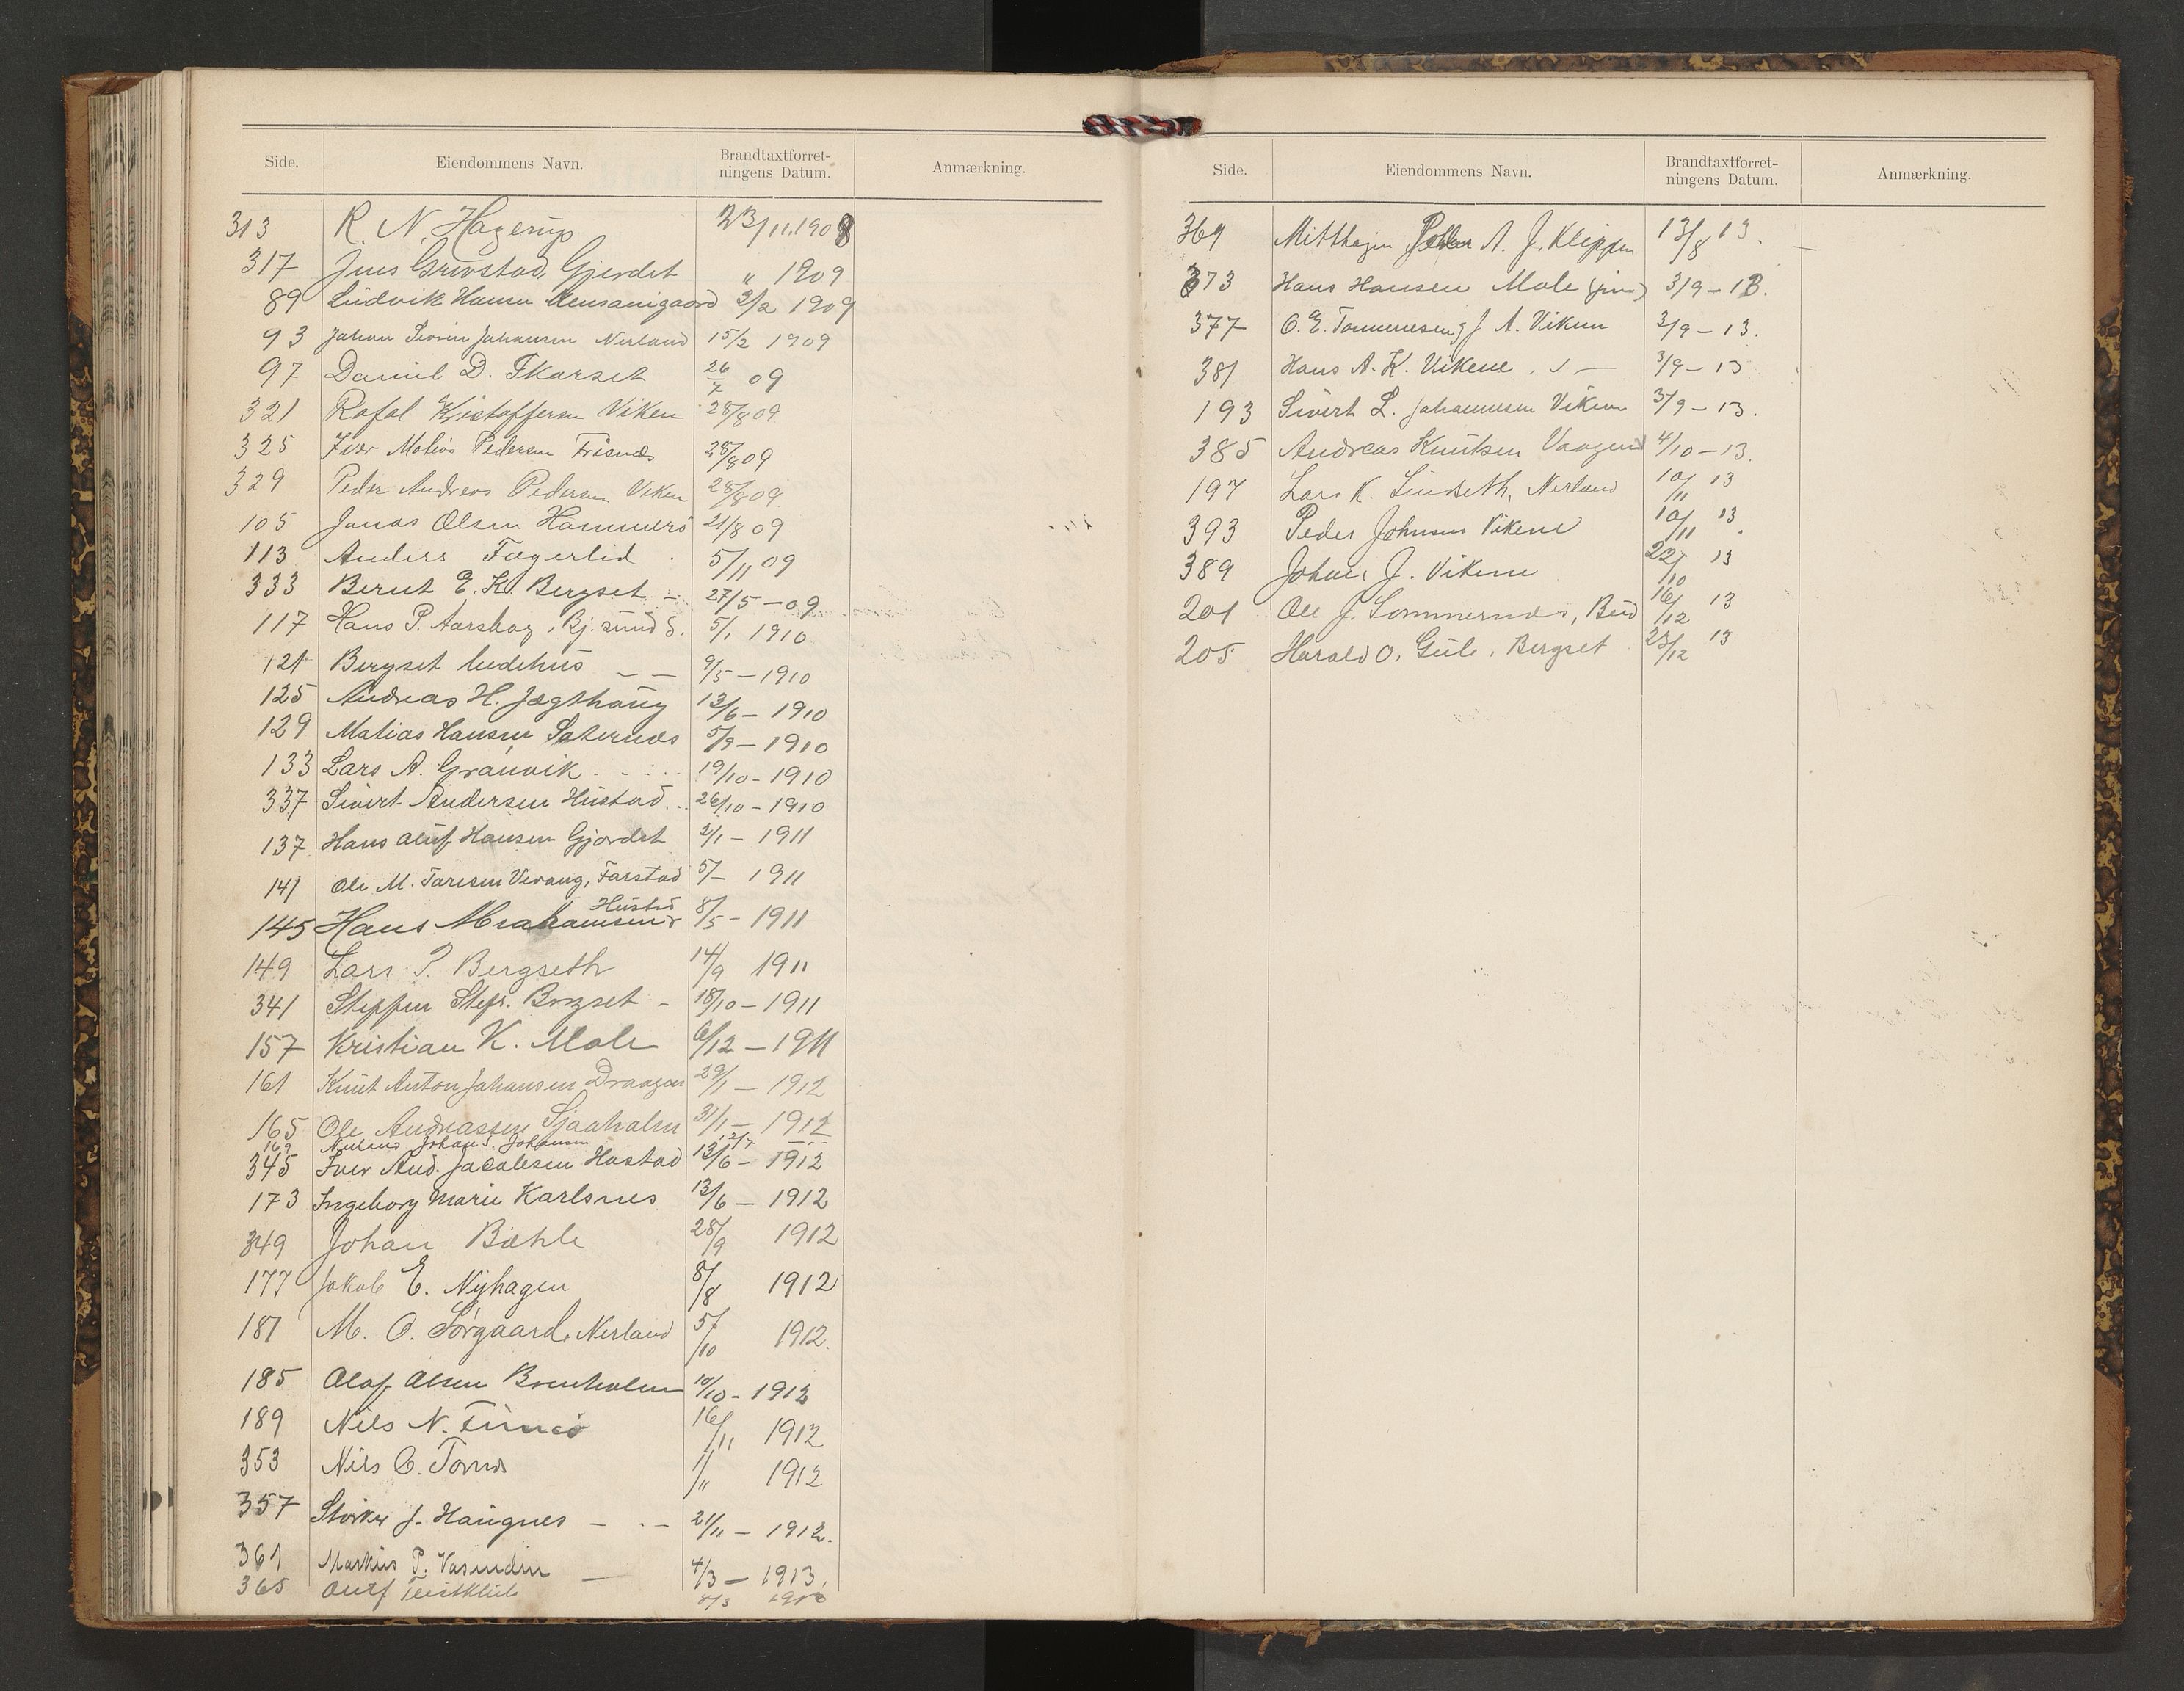 Side. Eiendommens Navn. Brandtaxtforret-ningens Datum. Anmærkning.
313 R. N. Hagerup 23/11.1908
317 Jens Grøvstad, Gjerdet " 1909
89 Ludvik Hansen 3/2 1909
93 Johan Severin Johansen Nerland 15/2 1909
97 Daniel D. Skarset 26/7 09
321 Rafal Kristoffersen Viken 28/8 09
325 Iver Matias Pedersen 28/8 09
329 Peder Andreas Pedersen Viken 28/8 09
105 Jonas Olsen Hammerö 21/8 09
113 Anders Fagerlid 5/11 09
333 Bernt E. K. Bergset – 27/5 – 09
117 Hans P. Aarsbog, Bj. sund S. 5/1 1910
121 Bergset bedehus – – 9/5 – 1910
125 Andreas H. Jægthaug 13/6 – 1910
129 Matias Hansen Saternes 5/9 – 1910
133 Lars A. Granvik 19/10 – 1910
337 Sivert Andersen Hustad 26/10 – 1910
137 Hans Oluf Hansen Gjerdet 2/1 – 1911
141 Ole M. Taresen Vevang, Farstad 5/ – 1911
145 Hans Abrahamsen Hustad 8/5 – 1911
149 Lars P. Bergseth 14/9 1911
341 Steffen Stef. Bergset – 18/10 – 1911
157 Kristian K. Male 6/12 – 1911
161 Knut Anton Johansen Draagen 29/1 – 1912
165 Ole Andreassen Sjaaholm 31/1 – 1912
169 Nerland Johan S. Johansen 12/7 – " –
345 Iver And. Jacobsen Hostad 13/6 – 1912
173 Ingeborg Marie Karlsnes 13/6 – 1912
349 Johan Bæhle 28/9 1912
177 Jakob E. Nyhagen 8/8 1912
181 M. O. Sørgaard, Nerland 5/10 1912.
185 Olaf Olsen Breiholmen 10/10 – 1912
189 Nils N. 16/11 1912
353 Nils O. Tornes 1/" 1912
357 Storker J. Haugnes – – 21/11 – 1912.
361 Markus P. Vasenden – 4/3 – 1913.
365 Oluf Teistklub 8/3
Side. Eiendommens Navn. Brandtaxtforret-ningens Datum. Anmærkning.
369 Mitthagen Peder A. J. Klippen 13/8 13. –
373 Hans Hansen Male (jun) 3/9 – 13.
377 O. E. Tommesen, J A. Viken 3/9 – 13.
381 Hans A. K. Vikene 3/9 – 13
193 Sivert L. Johannesen Viken 3/9 – 13.
385 Andreas Knutsen Vaagen 4/10 – 13.
197 Lars K. Lindseth, Nerland 10/11 13
393 Peder Johnsen Vikene 10/11 13.
389 Johan J. Vikene 22/10 13
201 Ole J. Sommernes, Bud 16/12 13
205 Harald O. Gule, Bergset 23/12 13